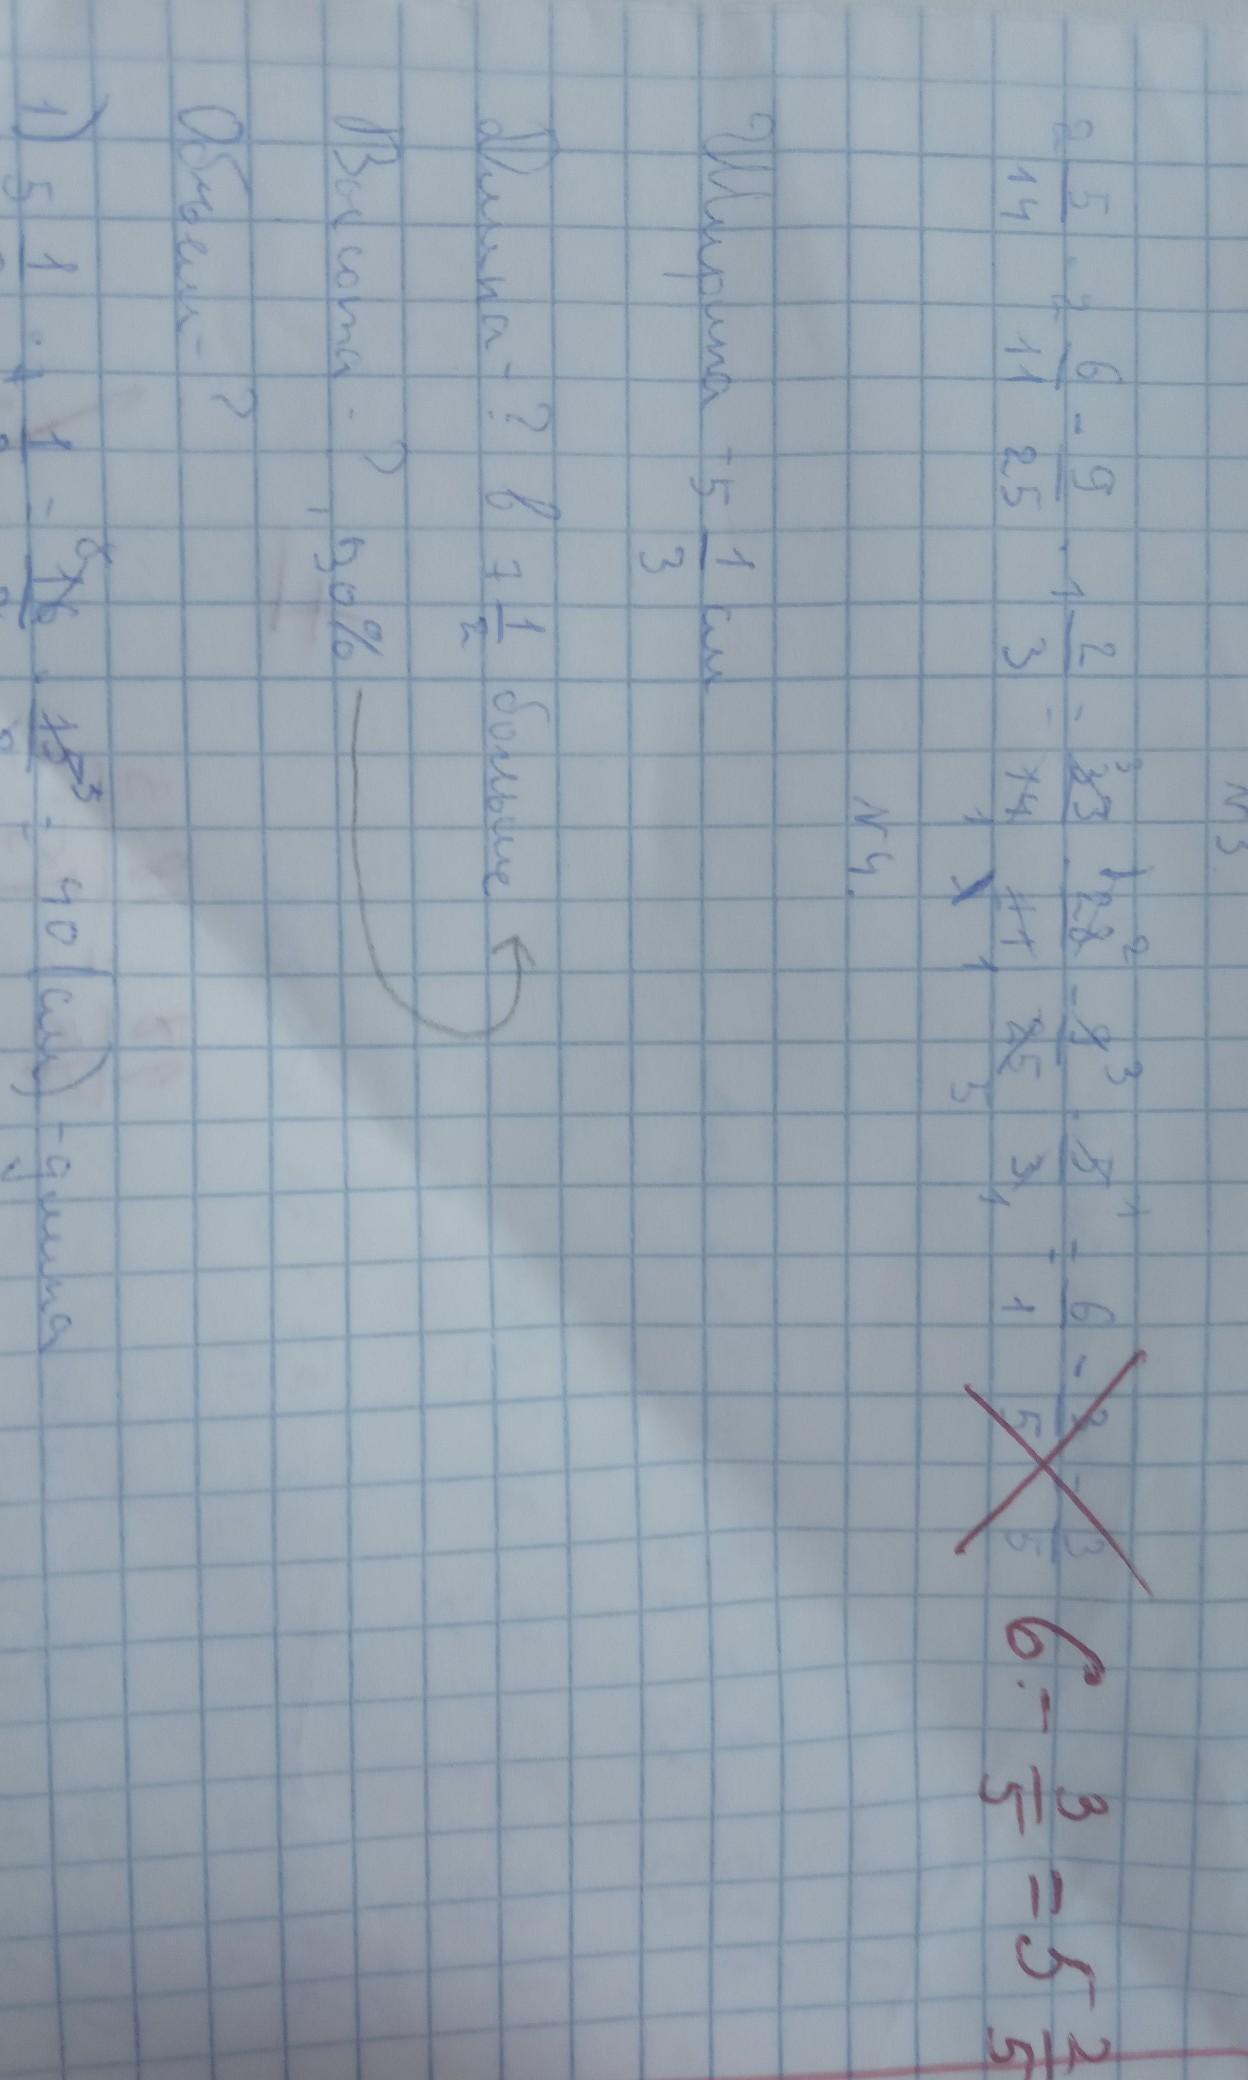 N 3.
2 5/14 · 2 6/11 - 9/25 · 1 2/3 = 33/14 · 28/11 - 9/25 · 5/3 = 6/1 - 3/5 = 3/5 6 - 3/5 = 5 2/5
N 4.
Ширина - 5 1/3 см
Длина - ? в 7 1/2 больше
Высота - ?
Объем - ?
1) 5 1/3 · 7 1/2 = 16/3 · 15/2 = 40 (см) - длина